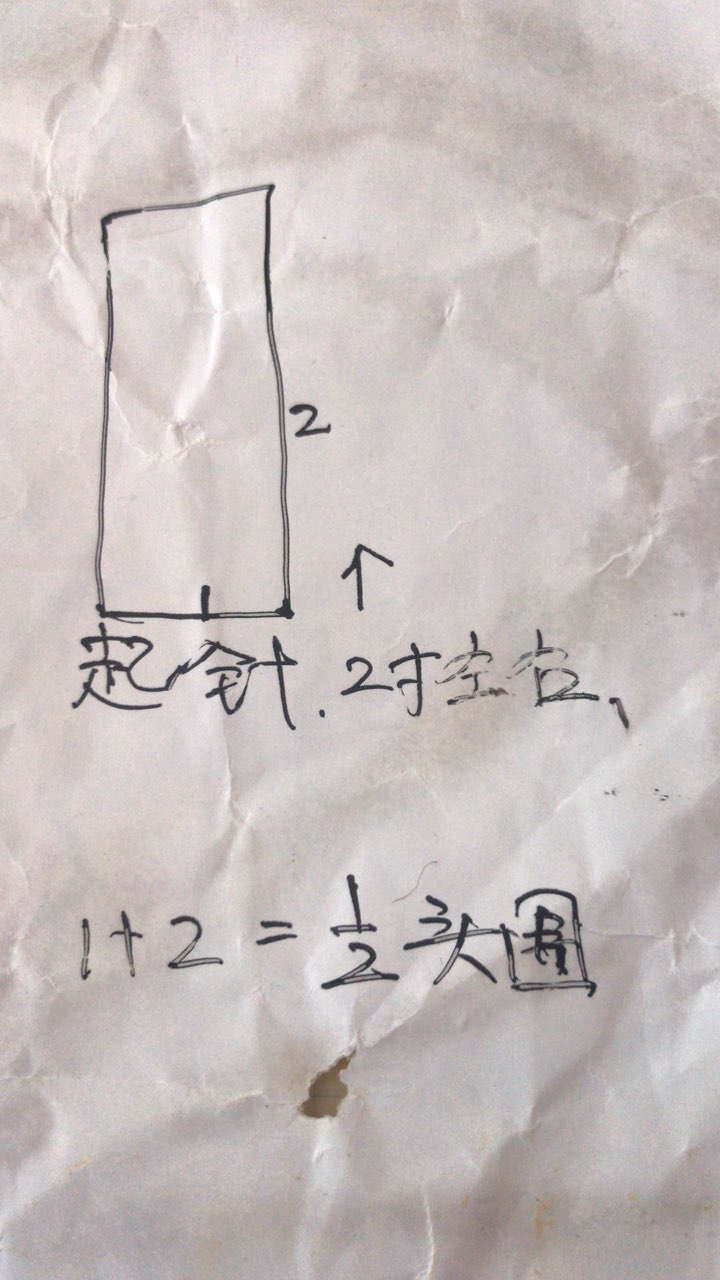 2
1
起针.2寸左右、
1+2=1/2头围